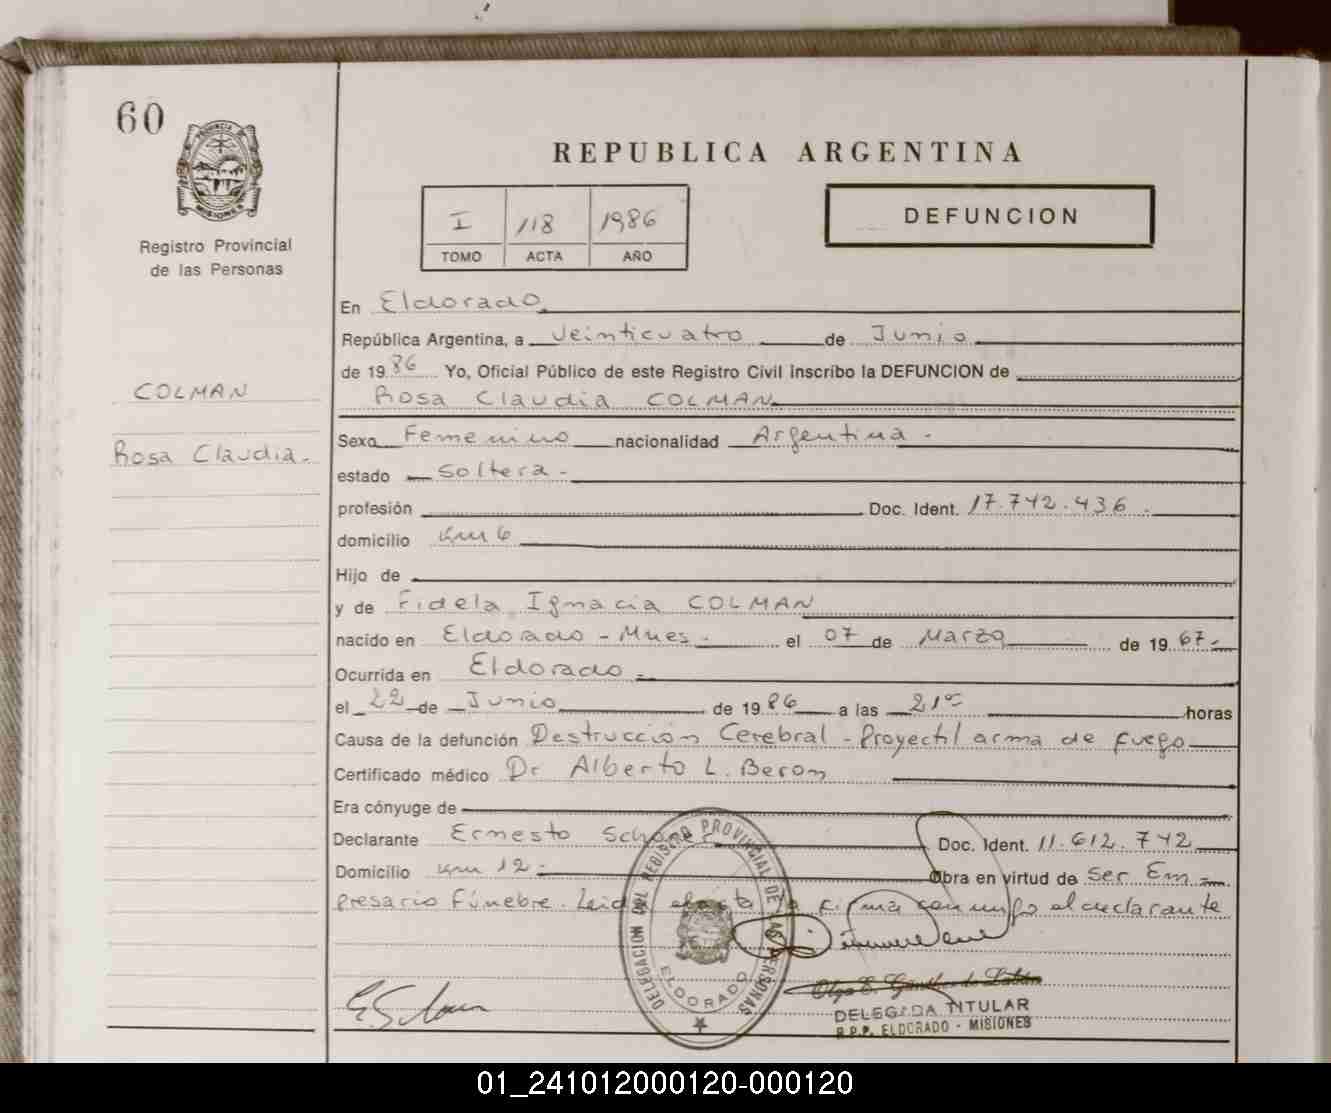 60
PROVINCIA DE
MISIONES
Registro Provincial
de las Personas
COLMAN
Rosa Claudia.-
REPUBLICA ARGENTINA
I 118 1986
TOMO ACTA AÑO
DEFUNCION
En Eldorado.
República Argentina, a Veinticuatro de Junio
de 19 86 Yo, Oficial Público de este Registro Civil inscribo la DEFUNCION de
Rosa Claudia COLMAN
Sexo Femenino nacionalidad Argentina.-
estado Soltera.-
profesión Doc. Ident. 17.742.436.
domicilio Km 6
Hijo de
y de Fidela Ignacia COLMAN
nacido en Eldorado - Mnes.- el 07 de Marzo de 19 67.-
Ocurrida en Eldorado.-
el 22 de Junio de 19 86 a las 21 horas
Causa de la defunción Destrucción Cerebral - Proyectil arma de fuego
Certificado médico Dr Alberto L. Beron
Era cónyuge de
Declarante Ernesto Doc. Ident. 11.612.742
Domicilio Km 12.- Obra en virtud de Ser Em-
presario Fúnebre. Leida el acta firma conmigo el declarante
DELEGACION DEL REGISTRO PROVINCIAL DE LAS PERSONAS
ELDORADO
DELEGADA TITULAR
R.P.P. ELDORADO - MISIONES
01_241012000120-000120